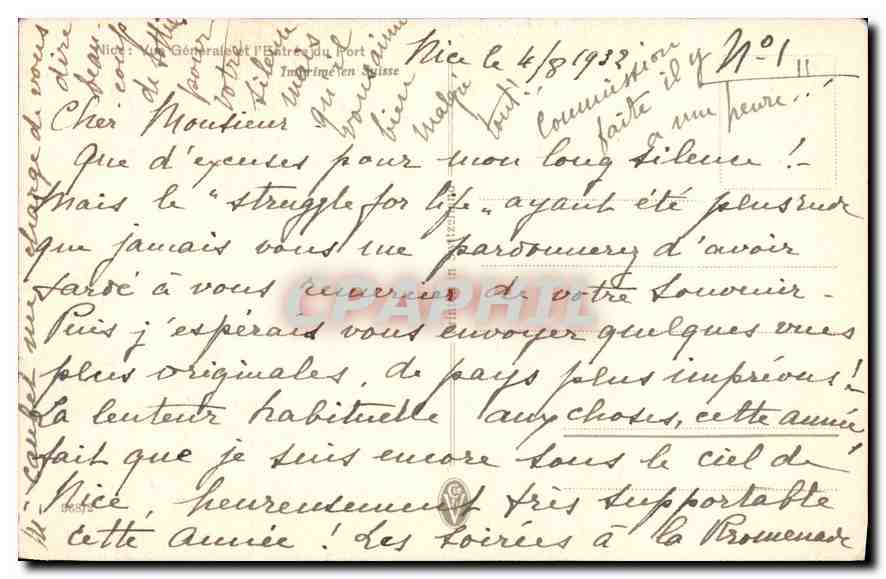 Nice: Vue Générale et l'Entrée du Port
Imprimé en Suisse
Nice le 4/8 1932
N° 1
Commission
faite il y
a une heure..!
Cher Monsieur -
Que d'excuses pour mon long silence !-
Mais le "struggle for life" ayant été plus rude
que jamais vous me pardonnerez d'avoir
tardé à vous remercier de votre souvenir -
Puis j'espérais vous envoyer quelques vues
plus originales, de pays plus imprévus !
La lenteur habituelle aux choses, cette année
fait que je suis encore sous le ciel de
Nice, heureusement très supportable
cette année ! Les soirées à la Promenade
me charge de vous
dire
beau-
coup
de
pour
votre
silence
mais
qu'il
vous aime
bien
malgré
tout!!
CPAPHIL